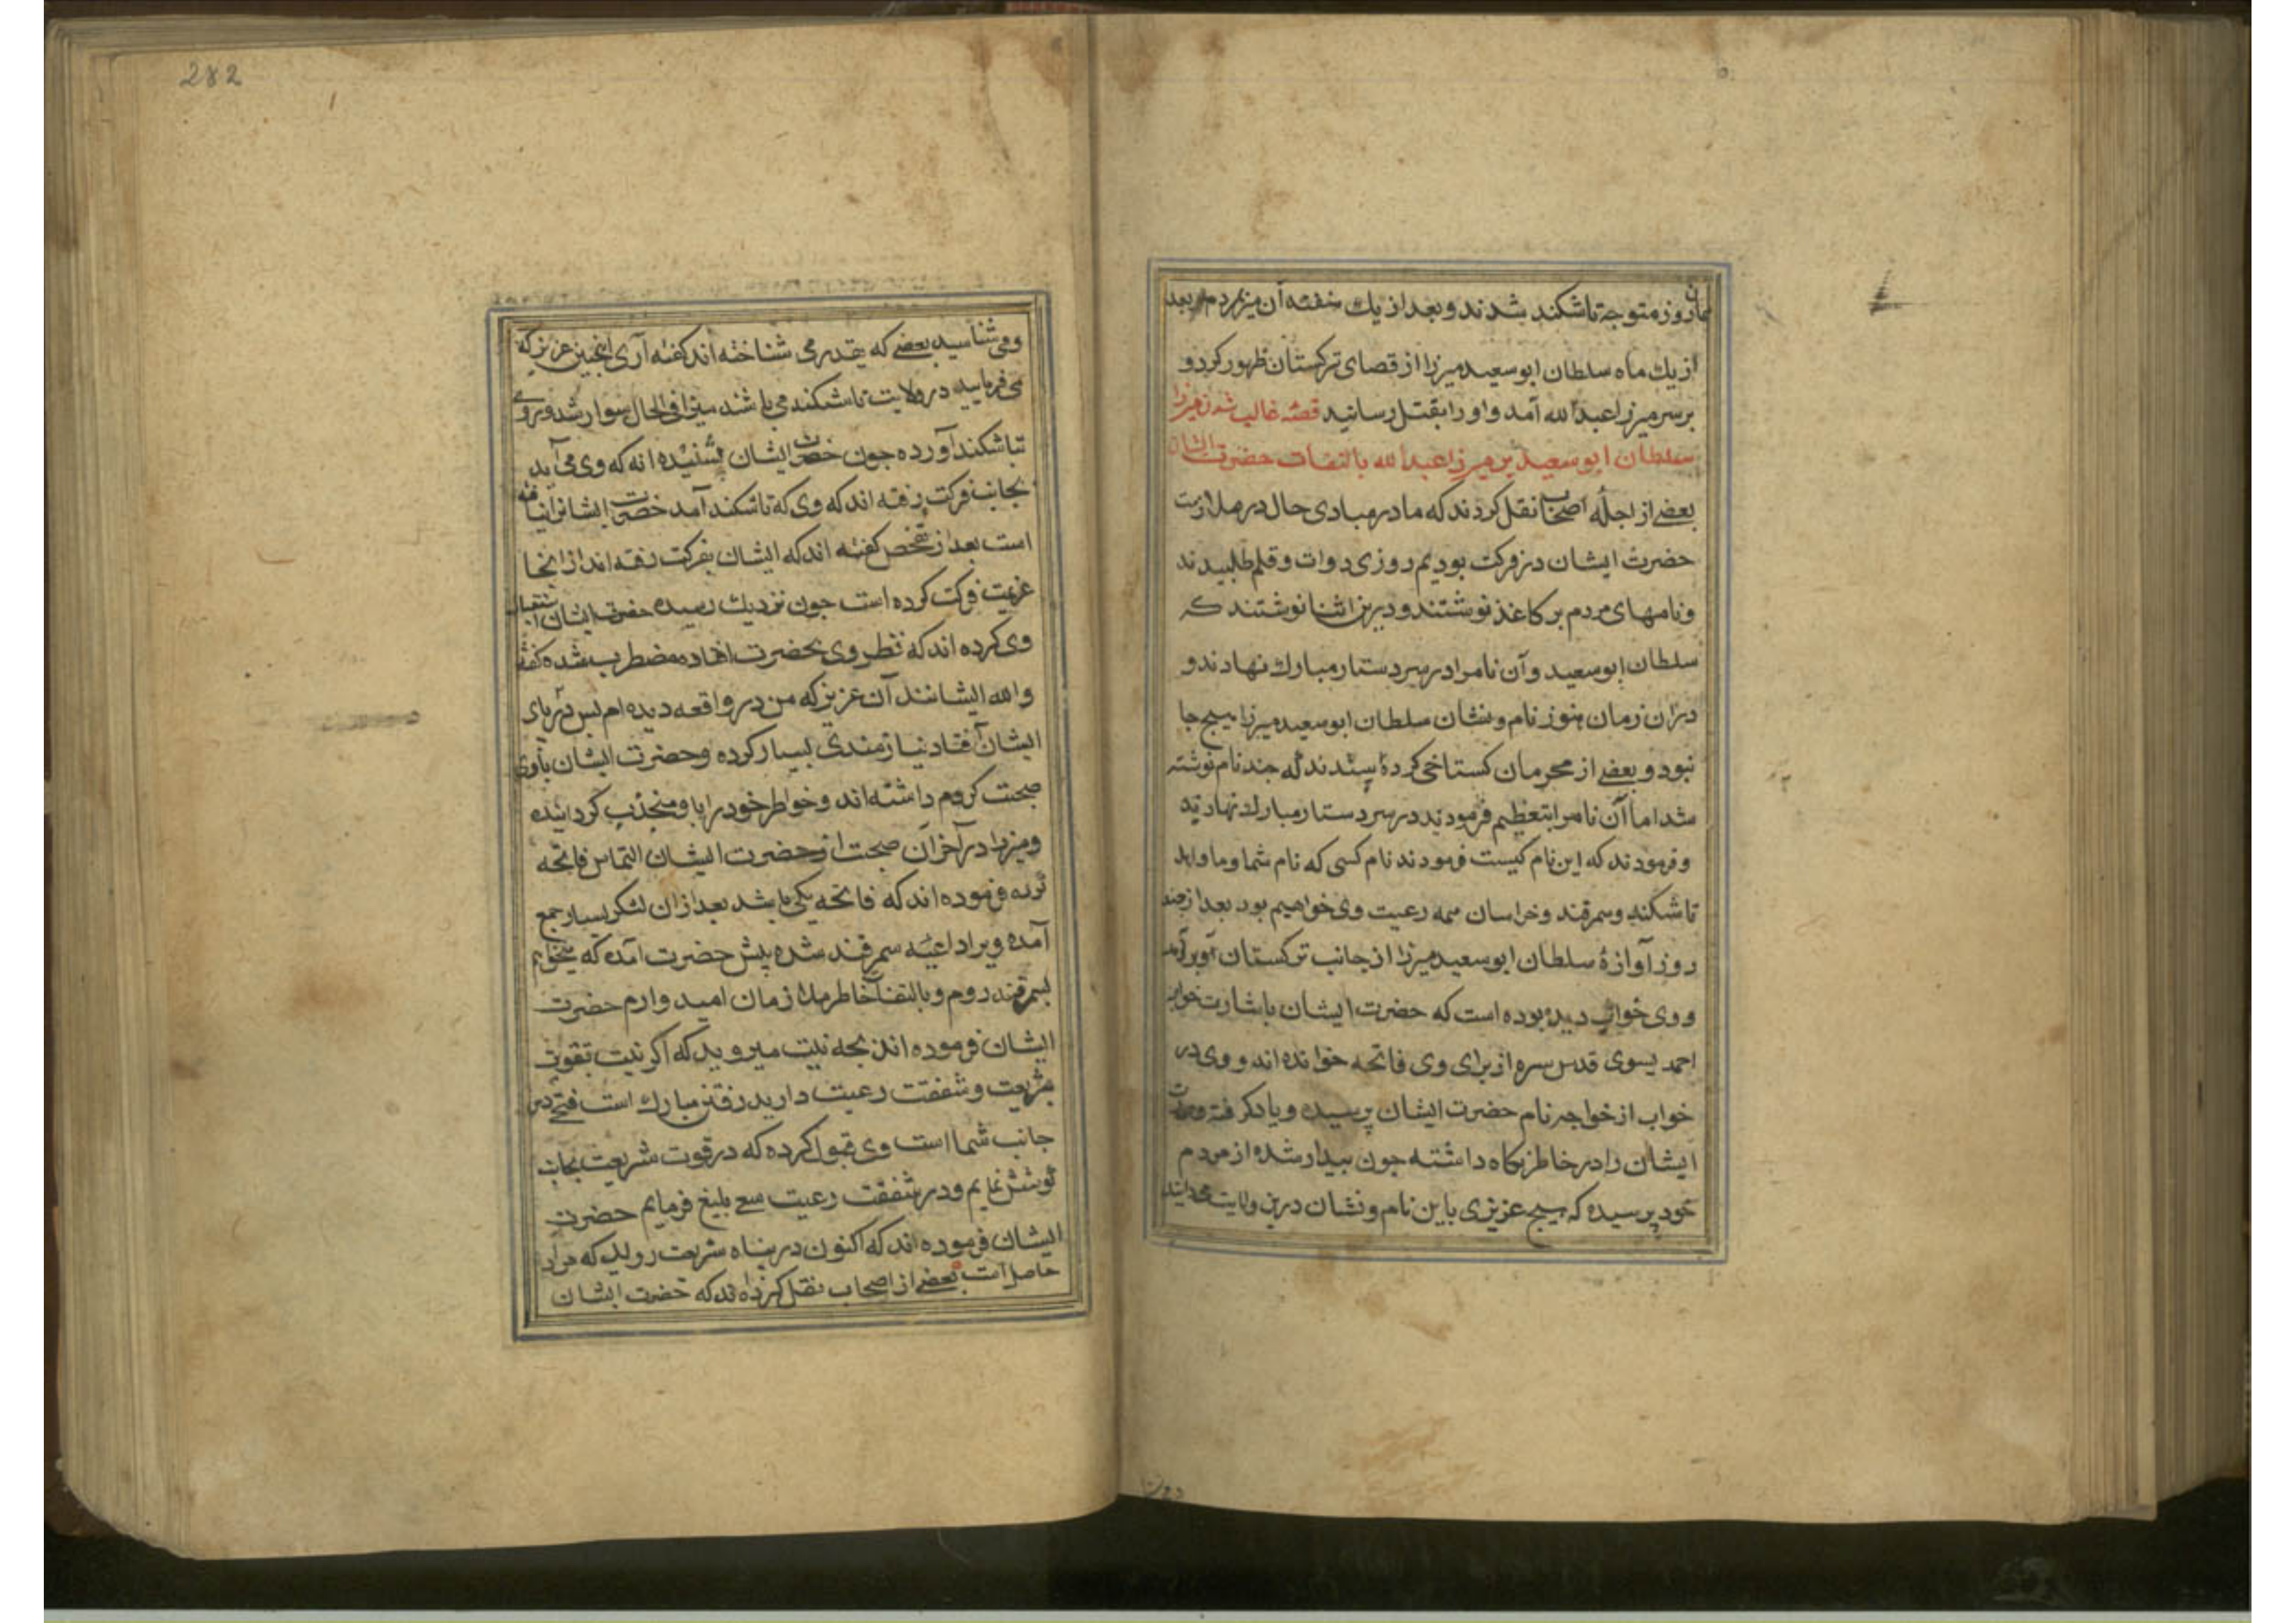 همان روز متوجه تاشکند شدند و بعد از یک هفته آن میرزا بمرد و بعد
از یک ماه سلطان ابوسعید میرزا از قصای ترکستان ظهور کرد و
بر سر میرزا عبدالله آمد و او را بقتل رسانید قصّه غالب شدن میرزا
سلطان ابوسعید بر میرزا عبدالله بالتفات حضرت ایشان
بعضے از اجلّه اصحاب نقل کردند که ما در مبادی حال در ملازمت
حضرت ایشان در فرکت بودیم روزی دوات و قلم طلبیدند
و نامهای مردم بر کاغذ نوشتند و درین اثنا نوشتند که
سلطان ابوسعید و آن نامرا در سر دستار مبارک نهادند و
در آن زمان هنوز نام و نشان سلطان ابوسعید میرزا هیچ جا
نبود و بعضے از محرمان کستاخی کرده پرسیدند که چند نام نوشته
شد اما آن نامرا بتعظیم فرمودند در سر دستار مبارک نهادند
و فرمودند که این نام کیست فرمودند نام کسی که نام شما و ما و اهل
تاشکند و سمرقند و خراسان همه رعیت وی خواهیم بود بعد از چند
روز آوازهٔ سلطان ابوسعید میرزا از جانب ترکستان برآمد
و وی خواب دیده بوده است که حضرت ایشان باشارت خواجه
احمد یسوی قدس سره از برای وی فاتحه خوانده اند و وی در
خواب از خواجه نام حضرت ایشان پرسیده و یاد کرفته و صورت
ایشان را در خاطر نکاه داشته جون بیدار شده از مردم
خود پرسیده که هیچ عزیزی باین نام و نشان درین ولایت میدانید
دمی
282
و می شناسید بعضے که چقدر می شناخته اند کفته آری اینجنین عزیز که
می فرمایید در ولایت تاشکند می باشند میرزا فی الحال سوار شد و روی
بتاشکند آورده جون حضرت ایشان شنیده اند که وی می آید
بجانب فرکت رفته اند که وی که تاشکند آمد حضرت ایشانرا نیافته
است بعد از تفحص کفته اند که ایشان بفرکت رفته اند از انجا
عزیمت فرکت کرده است جون نزدیک رسیده حضرت ایشان استقبال
وی کرده اند که نظر وی بحضرت افتاده مضطرب شده کفته
والله ایشانند آن عزیز که من در واقعه دیده ام پس در پای
ایشان افتاد نیازمندی بسیار کرده و حضرت ایشان باوی
صحبت کرم داشته اند و خواطر خود را با و منجذب کردانیده
و میرزا در آخر آن صحبت از حضرت ایشان التماس فاتحه
کرده فرموده اند که فاتحه یکی باشد بعد از ان لشکر بسیار جمع
آمده ویرا داعیه سمرقند شده پیش حضرت آمده که میخواهم
بسمرقند روم و بالتفات خاطر ملازمان امیدوارم حضرت
ایشان فرموده اند بچه نیت میروید که اکر نیت تقویت
شریعت و شفقت رعیت دارید رفتن مبارک است فتح در
جانب شما است وی قبول کرده که در قوت شریعت بجان
کوشش نمایم و در شفقت رعیت سعی بلیغ فرمایم حضرت
ایشان فرموده اند که اکنون در پناه شریعت روید که مراد
حاصل است بعضے از اصحاب نقل کرده اند که حضرت ایشان